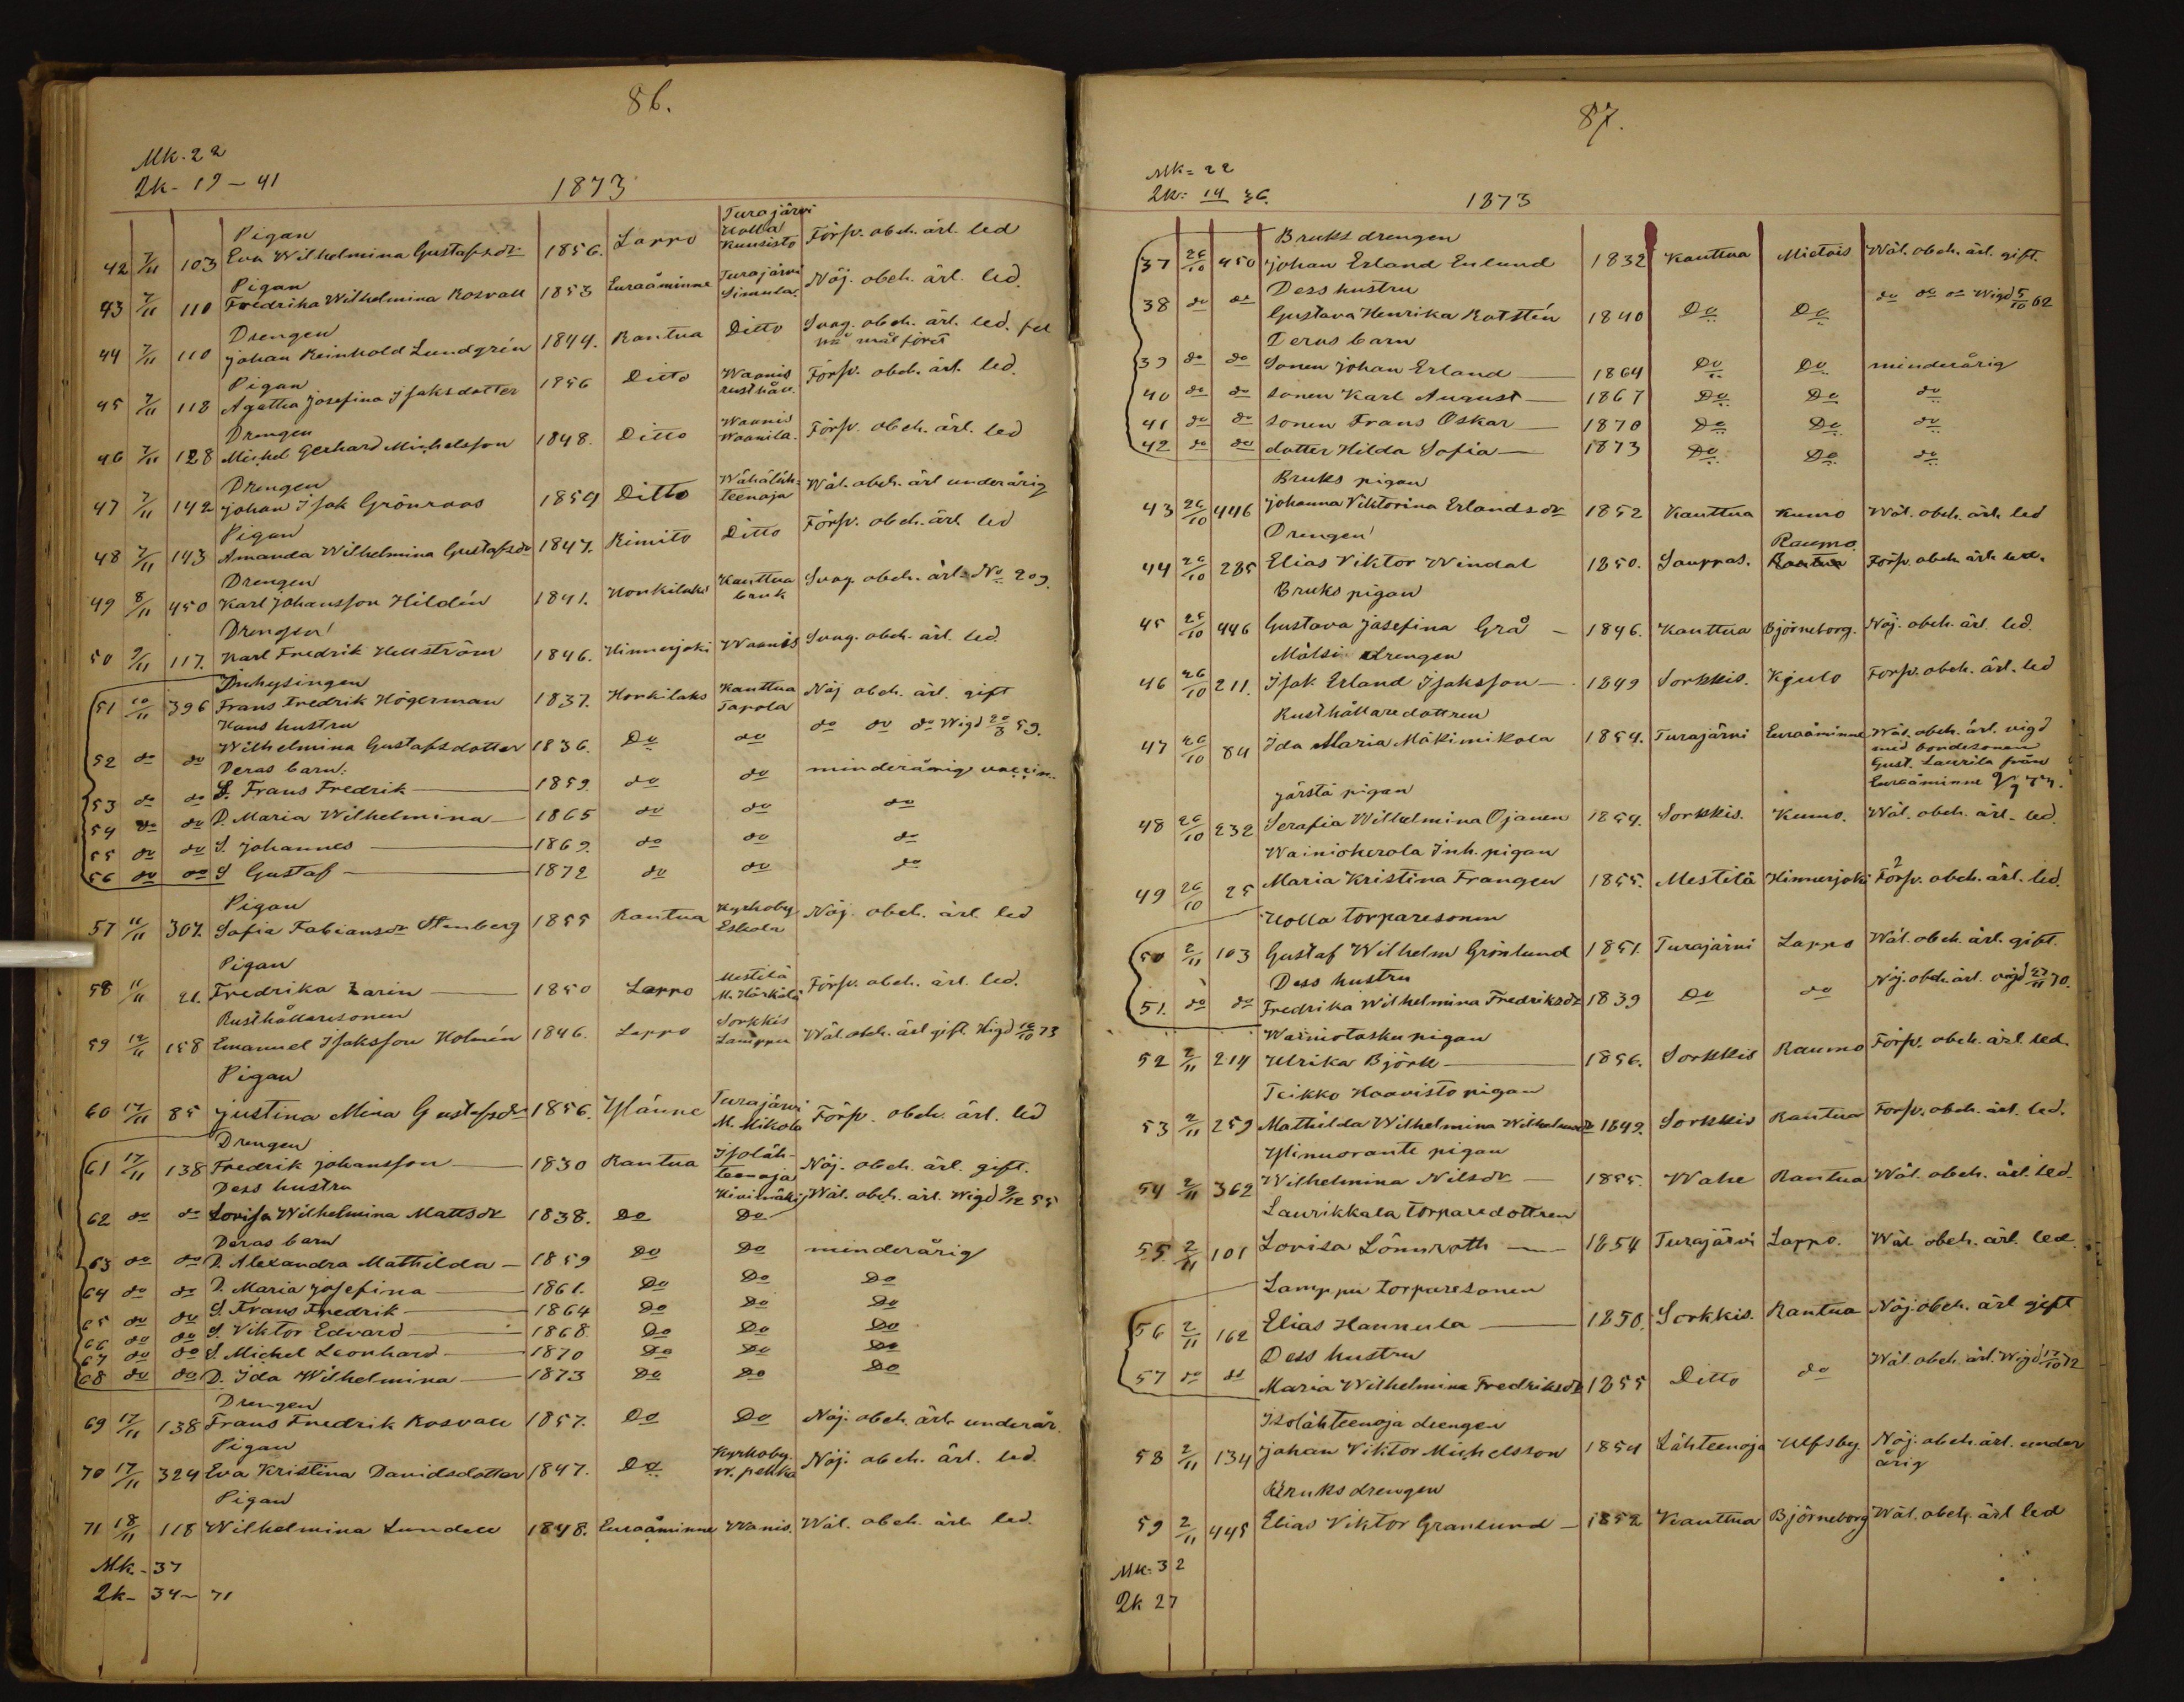 86.
Mk. 22
Qk - 19 - 41
1873
Pigan
42 7/11 103 Eva Wilhelmina Gustafsdr 1856. Lappo Turajärvi Uolla Kuusisto Försv. obeh. ärl. led
Pigan
43 7/11 110 Fredrika Wilhelmina Rosvall 1853 Euraåminne Turajärvi Simula. Nöj. obeh. ärl. led.
Drengen
44 7/11 110 Johan Reinhold Lundgrén 1844. Rantua Ditto Svag. obeh. ärl. led. fel
Pigan
45 7/11 118 Agatha Josefina Isaksdotter 1856 Ditto Waanis rusthåll. Försv. obeh. ärl. led.
Drengen
46 7/11 128 Michel Gerhard Michelsson 1848. Ditto Waanis Waanila. Försv. obeh. ärl. led
Drengen
47 7/11 142 Johan Isak Grönroos 1859 Ditto Wähäläh-teenoja Wäl. obeh. ärl underårig
Pigan
48 7/11 143 Amanda Wilhelmina Gustafsdr 1847. Kimito Ditto Försv. obeh. ärl. led
Drengen
49 8/11 450 Karl Johansson Hildén 1841. Honkilaks Kauttua bruk Svag. obeh. ärl. No 209.
Drengen
50 9/11 117. Karl Fredrik Hellström 1846. Hinnerjoki Waanis Svag. obeh. ärl. led.
Inhysingen
51 10/11 396 Frans Fredrik Högerman 1837. Honkilaks Kauttua Tapola Nöj obeh. ärl. gift
Hans hustru
52 do do Wilhelmina Gustafsdotter 1836. Do do do do do Wigd 20/3 59.
Deras barn:
53 do do S. Frans Fredrik 1859. do do minderårig vaccin.
54 do do D. Maria Wilhelmina 1865 do do do
55 do do S. Johannes 1869. do do do
56 do do S Gustaf 1872 do do do
Pigan
57 11/11 307. Sofia Fabiansdr Stenberg 1855 Rantua Kyrkoby Eskola Nöj. obeh. ärl. led
Pigan
58 11/11 21. Fredrika Karin 1850 Lappo Mestilä M. Härkälä Försv. obeh. ärl. led.
Rusthållaresonen
59 12/11 158 Emanuel Isaksson Holmén 1846. Lappo Sorkkis Lamppu Wäl. obeh. ärl gift. Wigd 12/10 73
Pigan
60 17/11 85 Justina Mina Gustafsdr 1856. Yläune Turajärvi M. Mikola Försv. obeh. ärl. led
Drengen
61 17/11 138 Fredrik Johansson 1830 Rantua Isoläh-teenoja Nöj. obeh. ärl. gift.
Dess hustru
62 do do Lovisa Wilhelmina Mattsdr 1838. Do Kivimäki Do Wäl. obeh. ärl. Wigd 9/12 55
Deras barn
63 do do D. Alexandra Mathilda 1859 Do Do minderårig
64 do do D. Maria Josefina 1861. Do Do Do
65 do do S. Frans Fredrik 1864 Do Do Do
66 do do S. Viktor Edvard 1868 Do Do Do
67 do do S. Michel Leonhard 1870 Do Do Do
68 do do D. Ida Wilhelmina 1873 Do Do Do
Drengen
69 17/11 138 Frans Fredrik Rosvall 1857. Do Do Nöj. obeh. ärl. underår.
Pigan
70 17/11 324 Eva Kristina Davidsdotter 1847. Do Kyrkoby. W. pelkka Nöj. obeh. ärl. led.
Pigan
71 18/11 118 Wilhelmina Lundell 1848. Euraåminne Wanis. Wäl. obeh. ärl. led.
Mk. - 37
Qk - 34 - 71
87.
Mk = 22
Qk = 14 36.
1873
Bruks drengen
37 26/10 450 Johan Erland Enlund 1832 Kauttua Mietois Wäl. obeh. ärl. gift.
Dess hustru
38 do do Gustava Henrika Rotstén 1840 Do Do do do do Wigd 5/10 62
Deras barn
39 do do Sonen Johan Erland 1864 Do Do minderårig
40 do do sonen Karl August 1867 Do Do do
41 do do sonen Frans Oskar 1870 Do Do do
42 do do dotter Hilda Sofia 1873 Do Do do
Bruks pigan
43 26/10 446 Johanna Viktorina Erlandsdr 1852 Kauttua Kumo Wäl. obeh. ärl. led
Drengen
44 26/10 285 Elias Viktor Windal 1850. Sauppas. Raumo Rantua Försv. obeh. ärl. led.
Bruks pigan
45 25/10 446 Gustava Josefina Grå 1846. Kauttua Björneborg. Nöj. obeh. ärl. led.
Mälsi drengen
46 26/10 211. Isak Erland Isaksson 1849 Sorkkis. Kjulo Försv. obeh. ärl. led
Rusthållaredottren
47 26/10 84 Ida Maria Mäkimikola 1854. Turajärvi Euraåminne Wäl. obeh. ärl. vigd
med bondesonen
Gust. Laurila från
Euraåminne
Järstä pigan
48 26/10 232 Serafia Wilhelmina Ojanen 1854. Sorkkis. Kumo. Wäl. obeh. ärl. led.
Wainiokerola Inh. pigan
49 26/10 25 Maria Kristina Frangen 1855. Mestilä Hinnerjoki Försv. obeh. ärl. led.
Uolla torparesonen
50 2/11 103 Gustaf Wilhelm Grönlund 1851. Turajärvi Lappo Wäl. obeh. ärl. gift.
Dess hustru
51. do do Fredrika Wilhelmina Fredriksdr 1839 Do do Nöj. obeh. ärl. vigd 27/11 70.
Wainiotasku pigan
52 2/11 214 Ulrika Björk 1856. Sorkkis Raumo Försv. obeh. ärl. led.
Teikko Haavisto pigan
53 2/11 259 Mathilda Wilhelmina Wilhelmsdr 1849. Sorkkis Rantua Försv. obeh. ärl. led.
Ylinuorante pigan
54 2/11 362 Wilhelmina Nilsdr 1855. Wahe Rantua Wäl. obeh. ärl. led.
Laurikkala torparedottren
55 2/11 101 Lovisa Lönnroth 1854 Turajärvi Lappo. Wäl obeh. ärl. led.
Lamppu torparesonen
56 2/11 162 Elias Hannula 1850. Sorkkis. Rantua Nöj. obeh. ärl gift
Dess hustru
57 do do Maria Wilhelmina Fredriksdr 1855 Ditto do Wäl. obeh. ärl. Wigd 17/10 72
Isolähteenoja drengen
58 2/11 134 Johan Viktor Michelsson 1854 Lähteenoja Ulfsby. Nöj. obeh. ärl. under
årig
Bruks drengen
59 2/11 445 Elias Viktor Granlund 1852 Kauttua Björneborg Wäl. obeh. ärl led
Mk. 32
Qk 27